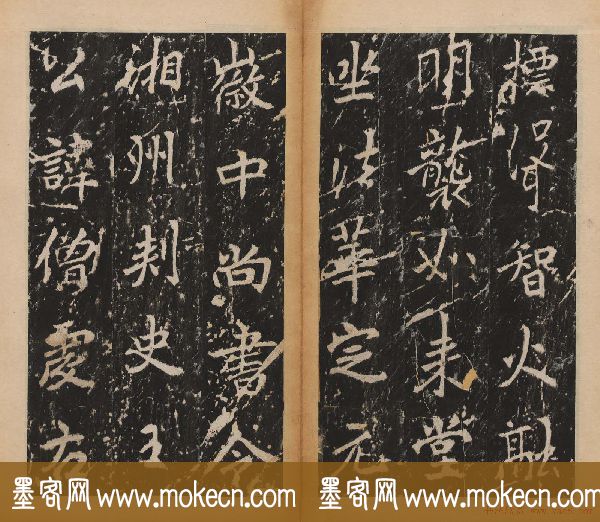 摽聲智火融
明襲如来堂
坐法華定元
徽中尚書令
湘州刺史王
公諱僧虔右
墨客网 www.mokecn.com
墨客网 www.mokecn.com